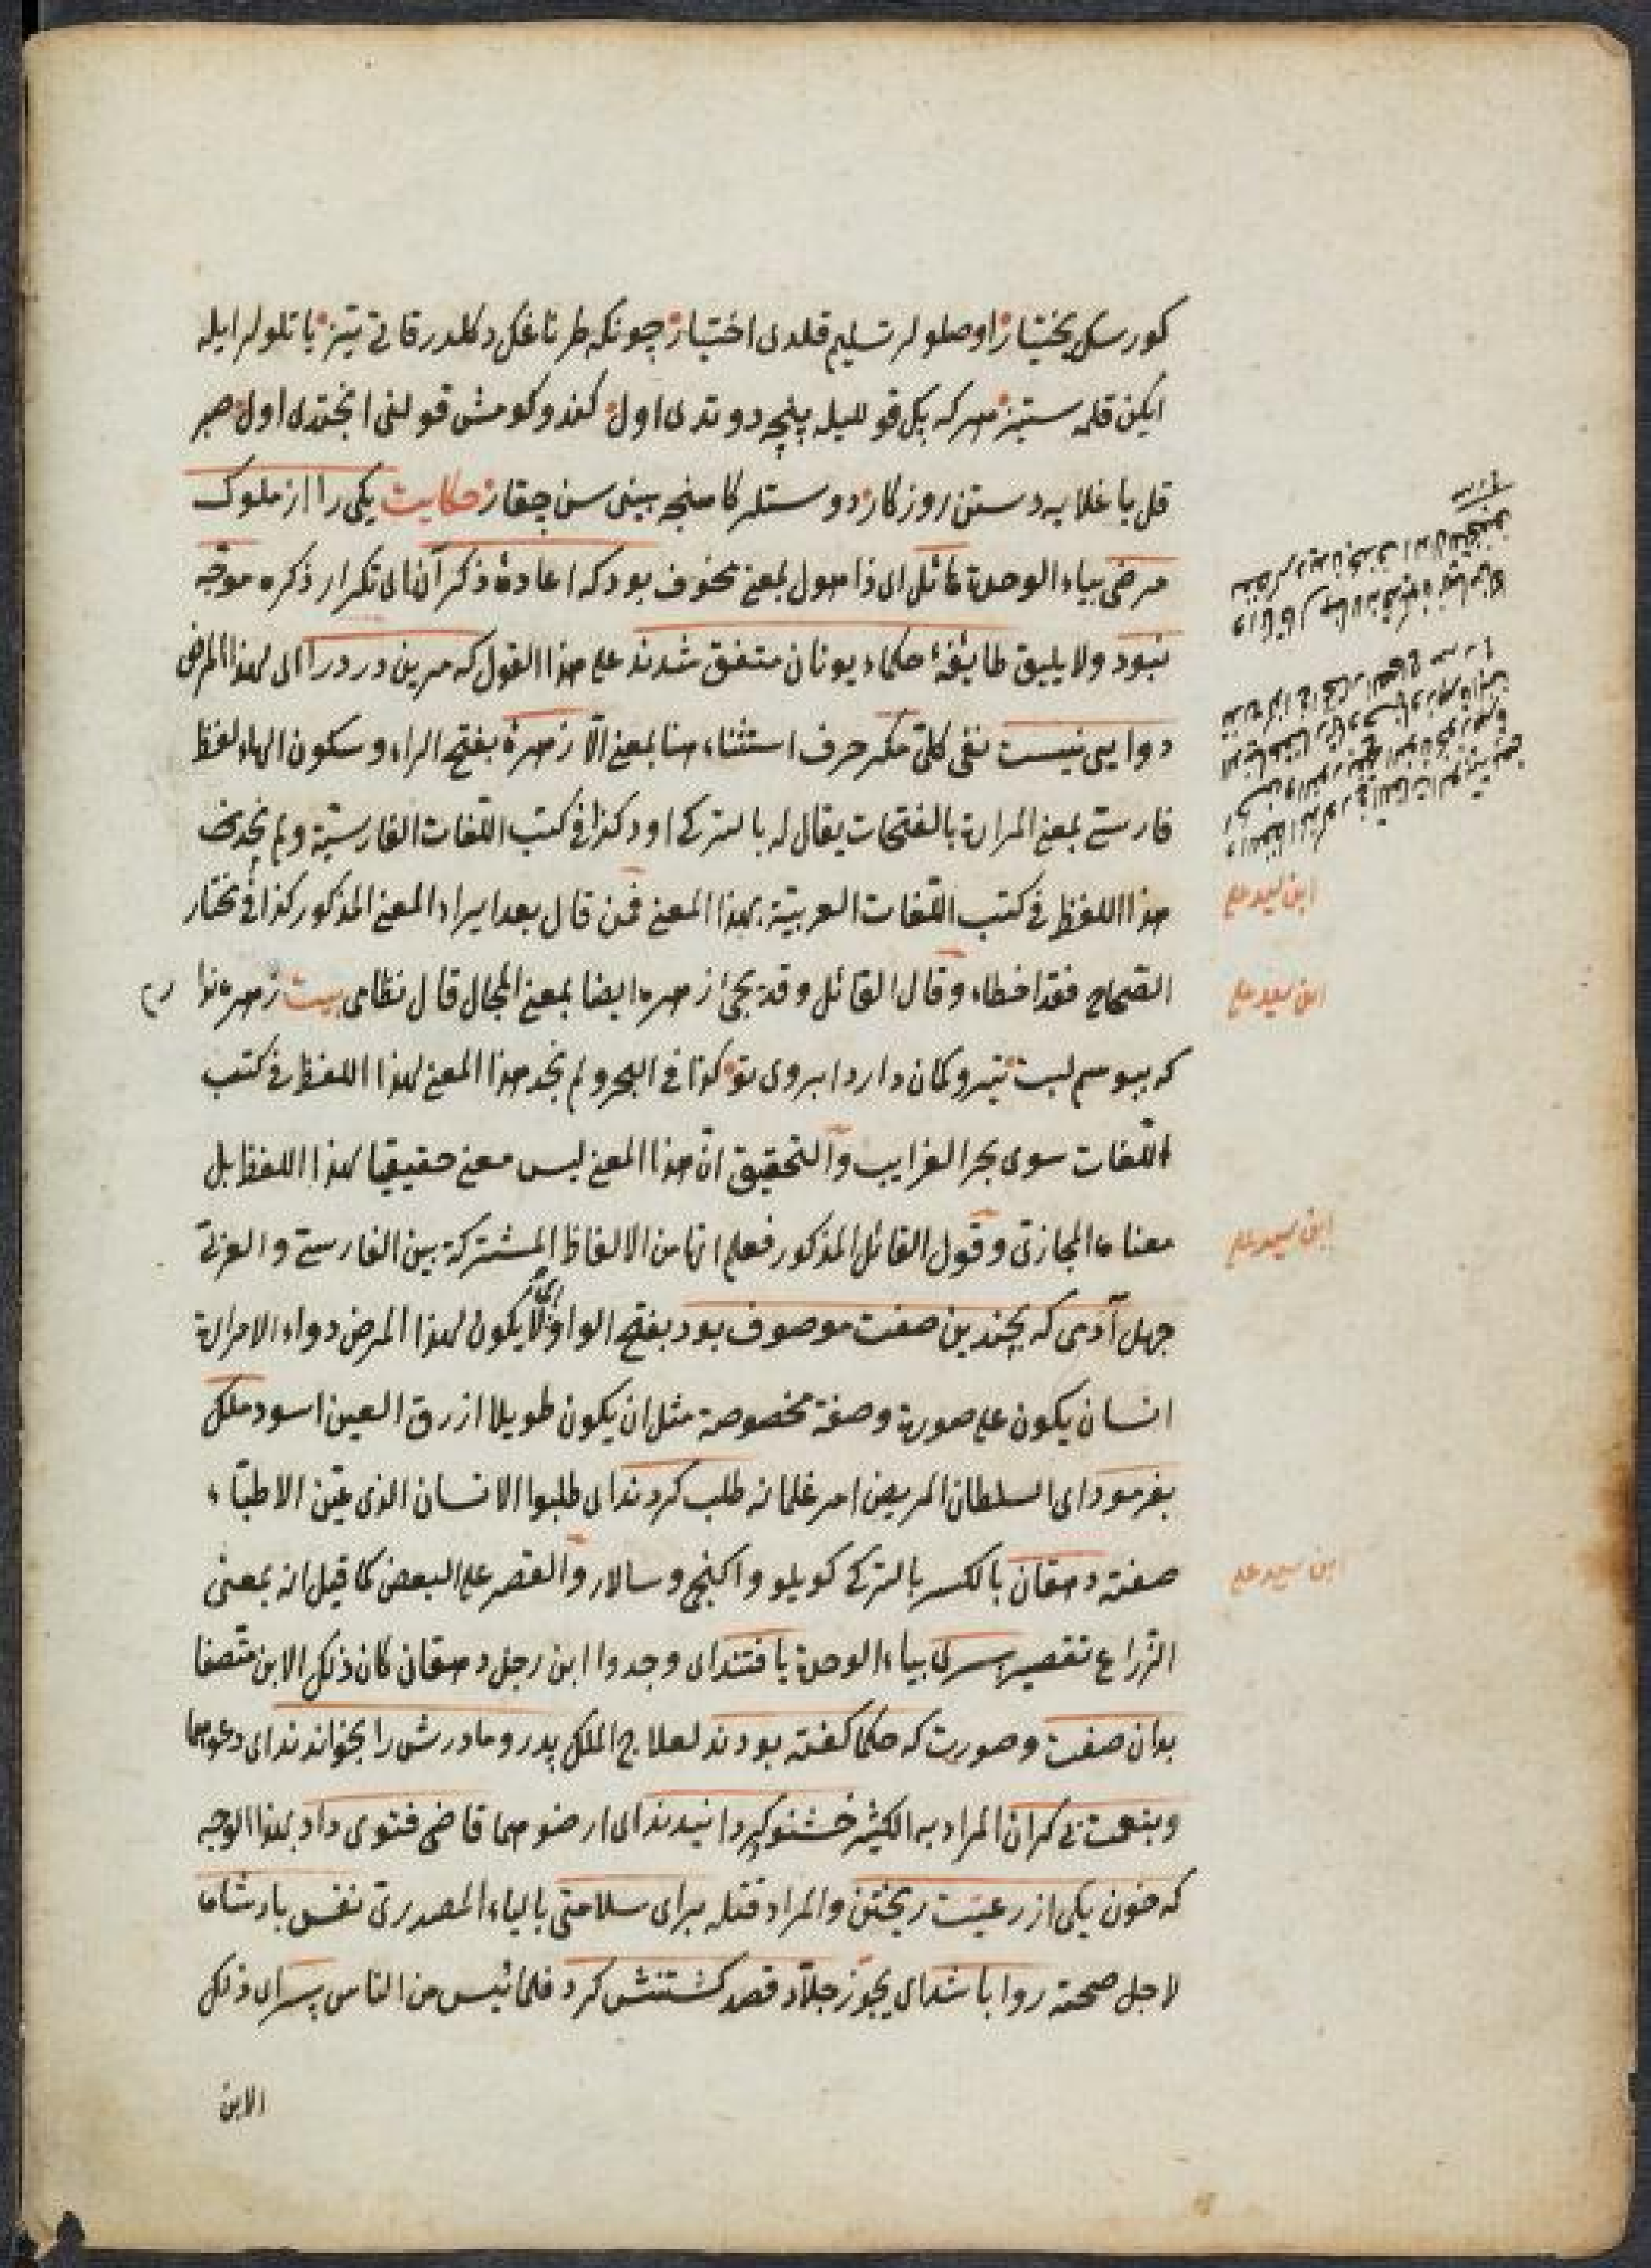 كورسك بختيار اوصلولر تسليم قلدى اختيار چونكه طرناغك دكلدر قاتى تيز ياتلولر ايله
ايكن قلمه ستيز هركه پك قوللیله پنجه دوتدى اول كندو كومش قولنى انجتدى اول صبر
قل باغلايه دستن روزكار دوستلر كامنجه بينى سن چقار حكايت يكى را از ملوك
مرضى بياء الوحدة هائل اى ذا هول بمعنى مخوف بود كه اعادهٔ ذكر آن اى تكرار ذكره موجه
نبود ولا يليق طايفهٔ حكماء يونان متفق شدند على هذا القول كه مرين درد را اى لهذا المرض
دوايى نيست نفى كلى مكر حرف استثناء هنا بمعنى الا زهره بفتح الراء وسكون الهاء لفظ
فارسى بمعنى المرارة بالفتحات يقال له بالتركى اود كذا فى كتب اللغات الفارسية ولم نجد
هذا اللفظ فى كتب اللغات العربية بهذا المعنى فمن قال بعد ايراد المعنى المذكور كذا فى مختار
الصحاح فقد اخطاء وقال القائل وقد يجئ زهره ايضا بمعنى المجال قال نظامى بيت زهره ترا
كه ببوسم لبت تير وكمان دارد ابروى تو كذا فى البحر ولم نجد هذا المعنى لهذا اللفظ فى كتب
اللغات سوى بحر الغرايب والتحقيق ان هذا المعنى ليس معنى حقيقيا لهذا اللفظ بل
معناه المجازى وقول القائل المذكور فعلم انها من الالفاظ المشتركة بين الفارسى والعربى
جهل آدمى كه بچندين صفت موصوف بود بفتح الواو اى لا يكون لهذا المرض دواء الا مرارة
انسان يكون على صورة وصفة مخصوصة مثل ان يكون طويلا ازرق العين اسود ملك
بفرمود اى السلطان المريض امر غلمانه طلب كردند اى طلبوا الانسان الذى عين الاطباء
صفته دهقان بالكسر بالتركى كويلو واكنجى وسالار والقصر على البعض كما قيل انه بمعنى
الزراع تقصير پسرى بياء الوحدة يافتند اى وجدوا ابن رجل دهقانى كان ذلك الابن متصفا
بدان صفت وصورت كه حكما كفته بودند لعلاج الملك پدر ومادرش را بخواندند اى دعوهما
وبنعمت بى كران المراد به الكثير خشنود كردانيدند اى ارضوهما قاضى فتوى داد بهذا الوجه
كه خون يكى از رعيت ريختن والمراد قتله براى سلامتى بالياء المصدرى نفس پادشاه
لاجل صحته روا باشد اى يجوز جلاد قصد كشتنش كرد فلما ئيس من الناس پسر اى ذلك
الابن
ابن سيد على
ابن سيد على
ابن سيد على
ابن سيد على